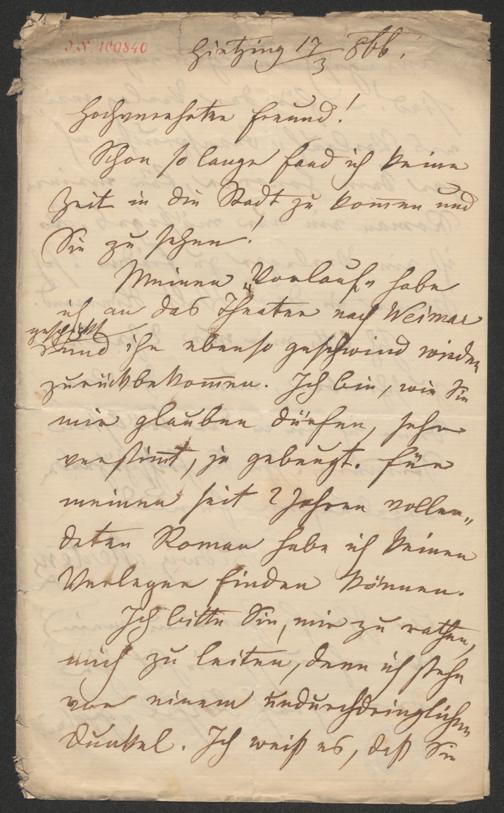 I.N. 100840
Hietzing 17/3 866.
Hochverehrter Freund!
Schon so lange fand ich keine
Zeit in die Stadt zu kommen und
Sie zu sehen!
Meinen „Vorlauf“ habe
ich an das Theater nach Weimar
geschickt
und ihn ebenso geschwind wieder
zurückbekommen. Ich bin, wie Sie
mir glauben dürfen, sehr
verstimt, ja gebeugt. Für
meinen seit 2 Jahren vollen„
deten Roman habe ich keinen
Verleger finden können.
Ich bitte Sie, mir zu rathen,
mich zu leiten, denn ich stehe
vor einem undurchdringlichen
Dunkel. Ich weiß es, daß Sie